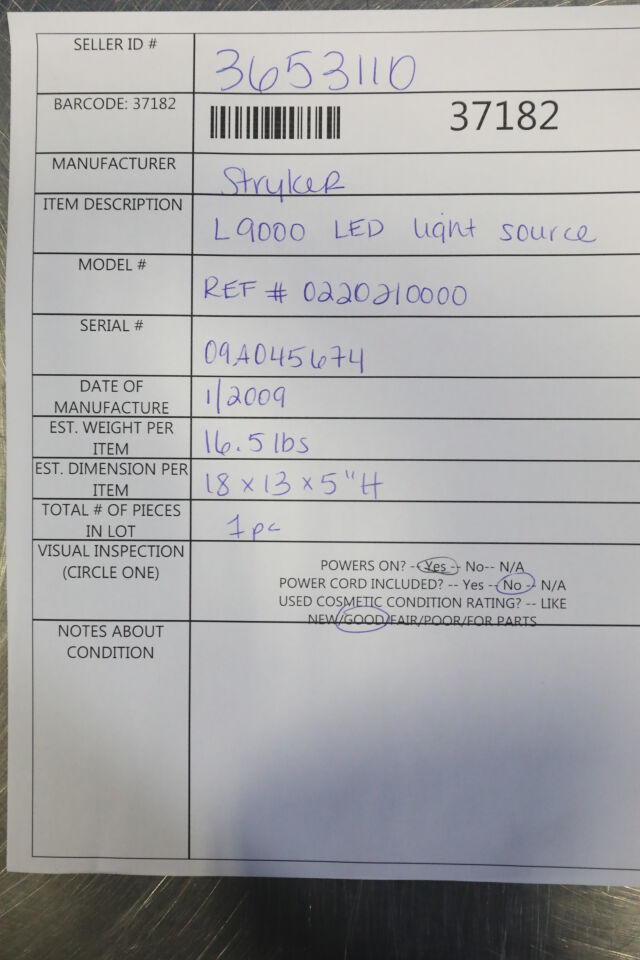 SELLER ID #
3653110
BARCODE: 37182
37182
MANUFACTURER
Stryker
ITEM DESCRIPTION
L9000 LED light source
MODEL #
REF # 0220210000
SERIAL #
09A045674
DATE OF
MANUFACTURE
1/2009
EST. WEIGHT PER
ITEM
16.5 lbs
EST. DIMENSION PER
ITEM
18 x 13 x 5"H
TOTAL # OF PIECES
IN LOT
1 pc
VISUAL INSPECTION
(CIRCLE ONE)
POWERS ON? -- Yes -- No-- N/A
POWER CORD INCLUDED? -- Yes -- No -- N/A
USED COSMETIC CONDITION RATING? -- LIKE
NEW/GOOD/FAIR/POOR/FOR PARTS
NOTES ABOUT
CONDITION